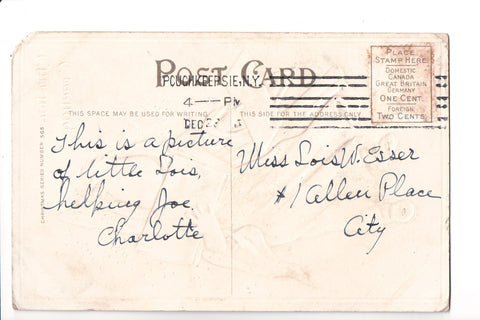 POST CARD
POUGHKEEPSIE, N.Y.
4 — PM
DEC 23
PLACE
STAMP HERE
DOMESTIC
CANADA
GREAT BRITAIN
GERMANY
ONE CENT.
FOREIGN
TWO CENTS.
THIS SPACE MAY BE USED FOR WRITING
THIS SIDE FOR THE ADDRESS ONLY
This is a picture
of little Lois,
helping Joe.
Charlotte
Miss Lois W. Esser
#1 Allen Place
City
CHRISTMAS SERIES NUMBER